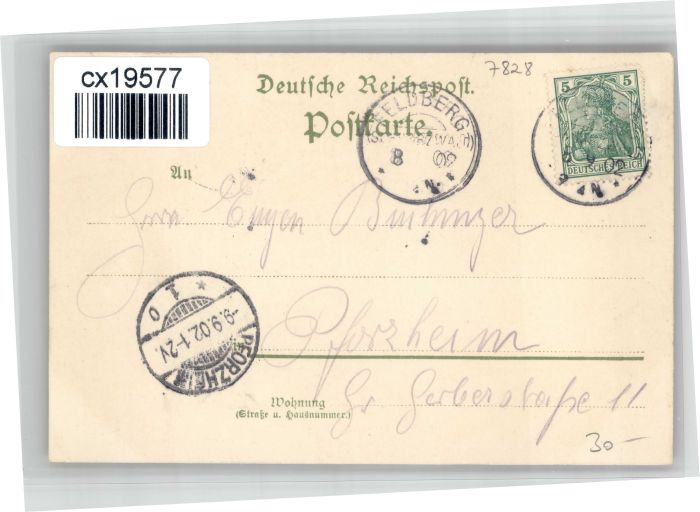 cx19577
7828
Deutsche Reichspost.
Postkarte.
FELDBERG
8
N.
5 5
DEUTSCHES REICH
N
An
Herrn Eugen
Pforzheim
1 0
-9.9.02.1-2N.
PFORZHEIM
Wohnung
(Straße u. Hausnummer.)
Gr Gerberstraße 11
30-